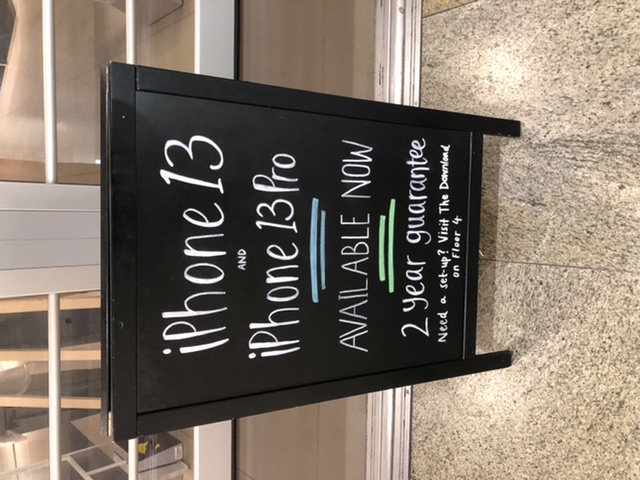 iPhone 13
AND
iPhone 13 Pro
AVAILABLE NOW
2 year guarantee
Need a set-up? Visit The Download
on Floor 4.